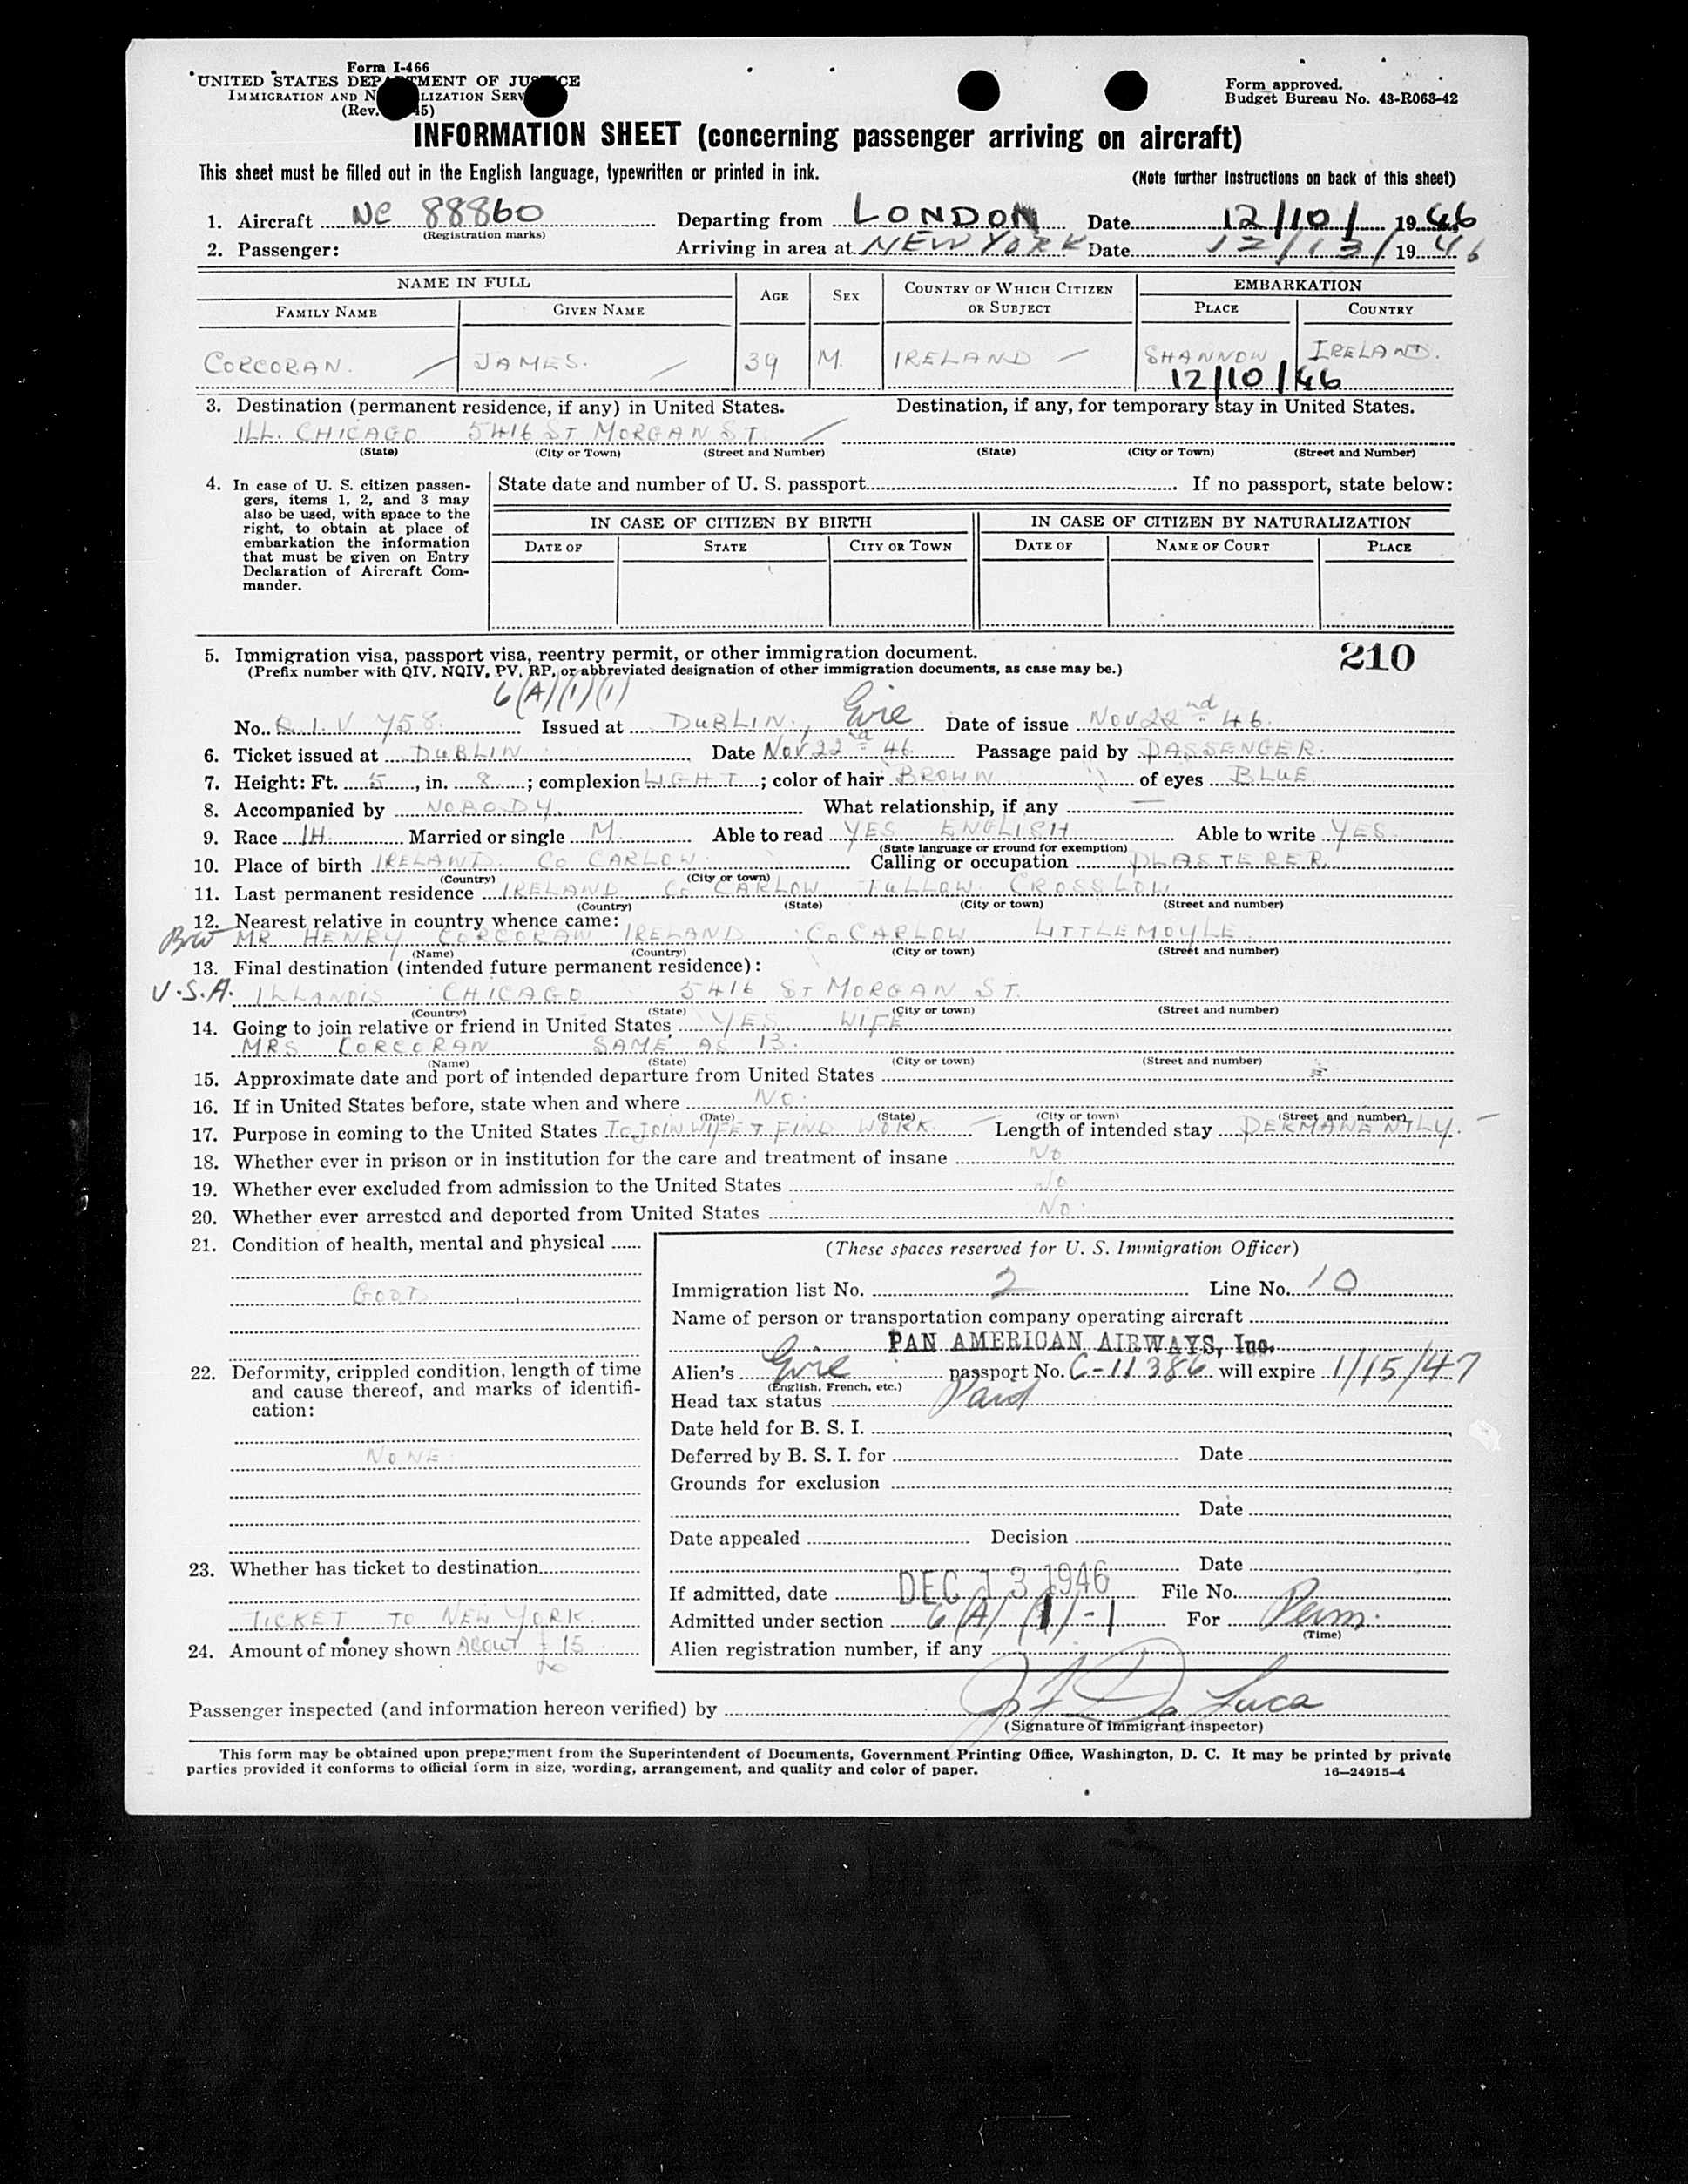 Form I-466
UNITED STATES DEPARTMENT OF JUSTICE
IMMIGRATION AND NATURALIZATION SERV
(Rev. 45)
Form approved.
Budget Bureau No. 43-R063-42
INFORMATION SHEET (concerning passenger arriving on aircraft)
This sheet must be filled out in the English language, typewritten or printed in ink. (Note further instructions on back of this sheet)
1. Aircraft NC 88860 Departing from LONDON Date 12/10/ 1946
(Registration marks)
2. Passenger: Arriving in area at NEW YORK Date 12/13/ 1946
NAME IN FULL AGE SEX COUNTRY OF WHICH CITIZEN OR SUBJECT EMBARKATION
FAMILY NAME GIVEN NAME PLACE COUNTRY
CORCORAN. JAMES. 39 M. IRELAND SHANNON IRELAND.
12/10/46
3. Destination (permanent residence, if any) in United States. Destination, if any, for temporary stay in United States.
ILL. CHICAGO 5416 ST MORGAN ST.
(State) (City or Town) (Street and Number) (State) (City or Town) (Street and Number)
4. In case of U. S. citizen passengers, items 1, 2, and 3 may also be used, with space to the right, to obtain at place of embarkation the information that must be given on Entry Declaration of Aircraft Commander.
State date and number of U. S. passport If no passport, state below:
IN CASE OF CITIZEN BY BIRTH IN CASE OF CITIZEN BY NATURALIZATION
DATE OF STATE CITY OR TOWN DATE OF NAME OF COURT PLACE
5. Immigration visa, passport visa, reentry permit, or other immigration document. 210
(Prefix number with QIV, NQIV, PV, RP, or abbreviated designation of other immigration documents, as case may be.)
6(A)(1)(1)
No. Q.I.V 758. Issued at DUBLIN, Eire Date of issue NOV 22nd 46.
6. Ticket issued at DUBLIN Date Nov 22nd 46 Passage paid by PASSENGER.
7. Height: Ft. 5, in. 8; complexion LIGHT; color of hair BROWN of eyes BLUE
8. Accompanied by NOBODY What relationship, if any —
9. Race IH. Married or single M. Able to read YES ENGLISH Able to write YES.
(State language or ground for exemption)
10. Place of birth IRELAND. Co CARLOW. Calling or occupation PLASTERER.
(Country) (City or town)
11. Last permanent residence IRELAND Co CARLOW TULLOW CROSSLOW
(Country) (State) (City or town) (Street and number)
12. Nearest relative in country whence came:
Bro MR HENRY CORCORAN IRELAND Co CARLOW LITTLEMOYLE
(Name) (Country) (City or town) (Street and number)
13. Final destination (intended future permanent residence):
U.S.A. ILLANOIS CHICAGO 5416 ST MORGAN ST.
(Country) (State) (City or town) (Street and number)
14. Going to join relative or friend in United States YES WIFE
MRS CORCORAN SAME AS 13.
(Name) (State) (City or town) (Street and number)
15. Approximate date and port of intended departure from United States
16. If in United States before, state when and where NO.
(Date) (State) (City or town) (Street and number)
17. Purpose in coming to the United States TO JOIN WIFE & FIND WORK. Length of intended stay PERMANENTLY.
18. Whether ever in prison or in institution for the care and treatment of insane No
19. Whether ever excluded from admission to the United States No
20. Whether ever arrested and deported from United States No.
21. Condition of health, mental and physical
GOOD
22. Deformity, crippled condition, length of time and cause thereof, and marks of identification:
NONE
23. Whether has ticket to destination
TICKET TO NEW YORK.
24. Amount of money shown ABOUT £ 15
(These spaces reserved for U. S. Immigration Officer)
Immigration list No. 2 Line No. 10
Name of person or transportation company operating aircraft
PAN AMERICAN AIRWAYS, Inc.
Alien's Eire passport No. C-11386 will expire 1/15/47
(English, French, etc.)
Head tax status Paid
Date held for B. S. I.
Deferred by B. S. I. for Date
Grounds for exclusion
Date
Date appealed Decision
Date
If admitted, date DEC 13 1946 File No.
Admitted under section 6(A)(1)-1 For Perm.
(Time)
Alien registration number, if any
Passenger inspected (and information hereon verified) by J F De Luca
(Signature of immigrant inspector)
This form may be obtained upon prepayment from the Superintendent of Documents, Government Printing Office, Washington, D. C. It may be printed by private
parties provided it conforms to official form in size, wording, arrangement, and quality and color of paper. 16—24915-4